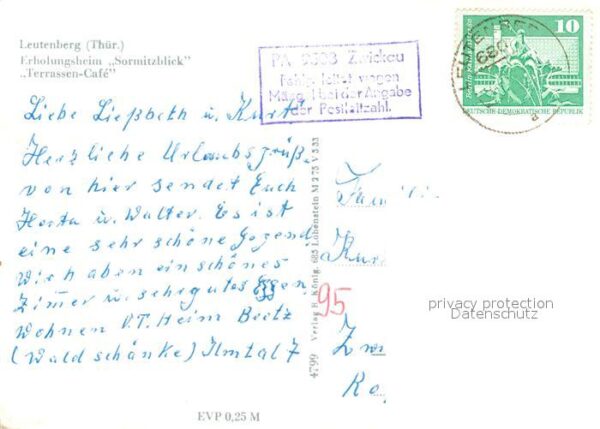 Leutenberg (Thür.)
Erholungsheim „Sormitzblick"
„Terrassen-Café"
PA 9503 Zwickau
Fehlgeleitet wegen
Mängel bei der Angabe
der Postleitzahl.
LEUTENBERG
6805
10
DEUTSCHE DEMOKRATISCHE REPUBLIK
Liebe Ließbeth u. Kurt
Herzliche Urlaubsgrüß
von hier sendet Euch
Herta u. Walter. Es ist
eine sehr schöne Gegend
Wir haben ein schönes
Zimmer u. sehr gutes Essen.
Wohnen V.T. Heim Beetz
(Wald schänke) Ilmtal 7
4799 Verlag H. König, 685 Lobenstein M 275 V 5 33
95
Famili
Kur
Zwi
Ro
privacy protection
Datenschutz
EVP 0,25 M